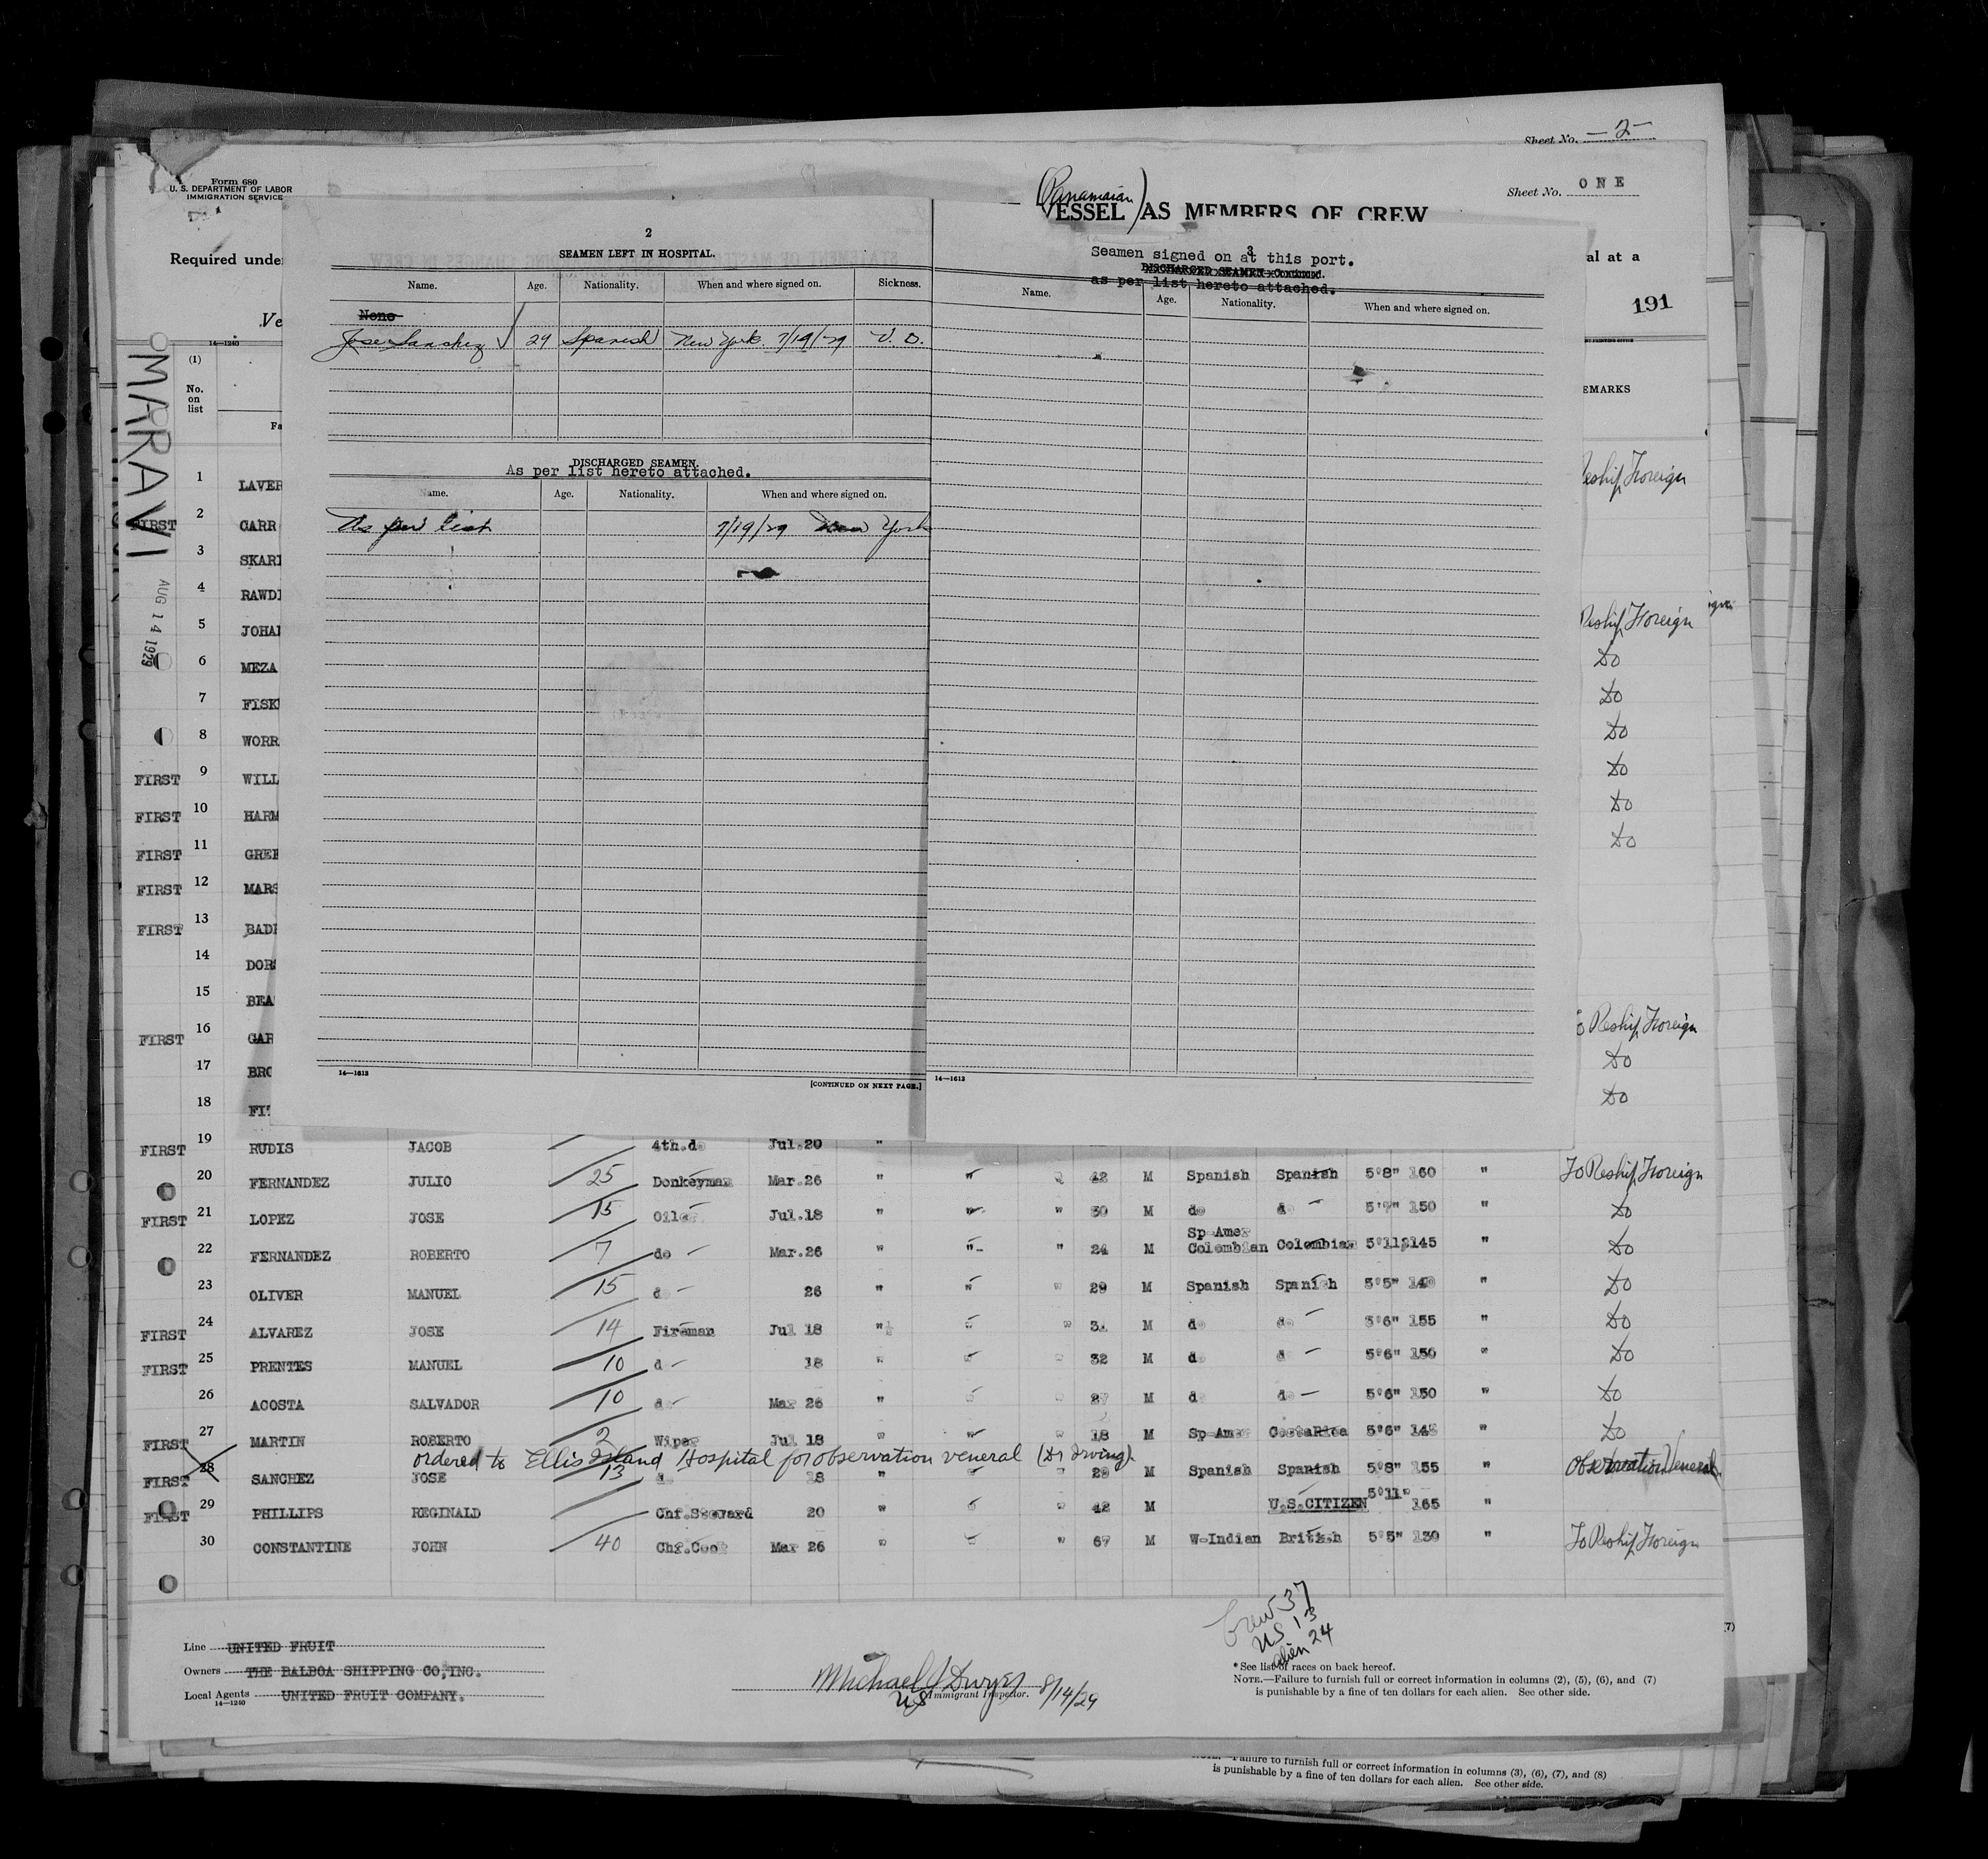 Sheet No. —2—
Form 680
U. S. DEPARTMENT OF LABOR
IMMIGRATION SERVICE
Sheet No. ONE
(Panamaian)
VESSEL AS MEMBERS OF CREW
Required unde
al at a
191
Ve
14—1240
(1)
No.
on
list
Fa
EMARKS
OMARAVI
AUG 14 1929
2
SEAMEN LEFT IN HOSPITAL.
Name. Age. Nationality. When and where signed on. Sickness.
None
Jose Sanchez √ 29 Spanish New York 7/19/29 V. D.
DISCHARGED SEAMEN.
As per list hereto attached.
Name. Age. Nationality. When and where signed on.
As per list 7/19/29 New York
14—1613
[CONTINUED ON NEXT PAGE.]
3
Seamen signed on at this port.
DISCHARGED SEAMEN—Continued.
as per list hereto attached.
Name. Age. Nationality. When and where signed on.
14—1613
1 LAVER Reship Foreign
FIRST 2 CARR
3 SKAR
4 RAWD
5 JOHA Reship Foreign
6 MEZA Do
7 FISK Do
8 WORR Do
FIRST 9 WILL Do
FIRST 10 HARM Do
FIRST 11 GREE Do
FIRST 12 MARS
FIRST 13 BAD
14 DOR
15 BEA
FIRST 16 GAR o Reship Foreign
17 BRO Do
18 FI Do
FIRST 19 RUDIS JACOB 4th.do Jul.20 "
20 FERNANDEZ JULIO 25 Donkeyman Mar.26 " " 42 M Spanish Spanish 5'8" 160 " To Reship Foreign
FIRST 21 LOPEZ JOSE 15 Oiler Jul.18 " " " 30 M do do 5'7" 150 " Do
22 FERNANDEZ ROBERTO 7 do Mar.26 " " " 24 M Sp Amer Colombian Colombian 5'11½ 145 " Do
23 OLIVER MANUEL 15 do 26 " " " 29 M Spanish Spanish 5'5" 140 " Do
FIRST 24 ALVAREZ JOSE 14 Fireman Jul 18 " " " 31 M do do 5'6" 155 " Do
FIRST 25 PRENTES MANUEL 10 do 18 " " " 32 M do do 5'6" 150 " Do
26 ACOSTA SALVADOR 10 do Mar 26 " " " 27 M do do 5'6" 150 " Do
FIRST 27 MARTIN ROBERTO 2 Wiper Jul 18 " " " 18 M Sp Amer CostaRica 5'6" 145 " Do
ordered to Ellis Island Hospital for observation veneral (Dr Irving).
FIRST 28 SANCHEZ JOSE 13 d 18 " " " 29 M Spanish Spanish 5'8" 155 " Observation Veneral
FIRST 29 PHILLIPS REGINALD Chf.Steward 20 " " " 42 M U.S.CITIZEN 5'11" 165 "
30 CONSTANTINE JOHN 40 Chf.Cook Mar 26 " " " 67 M W-Indian British 5'5" 130 " To Reship Foreign
Crew 37
US 13
alien 24
Line UNITED FRUIT
Owners THE BALBOA SHIPPING CO,INC.
Local Agents UNITED FRUIT COMPANY.
14—1240
Michael J Dwyer 8/14/29
US Immigrant Inspector.
* See list of races on back hereof.
NOTE.—Failure to furnish full or correct information in columns (2), (5), (6), and (7)
is punishable by a fine of ten dollars for each alien. See other side.
(7)
NOTE.—Failure to furnish full or correct information in columns (3), (6), (7), and (8)
is punishable by a fine of ten dollars for each alien. See other side.